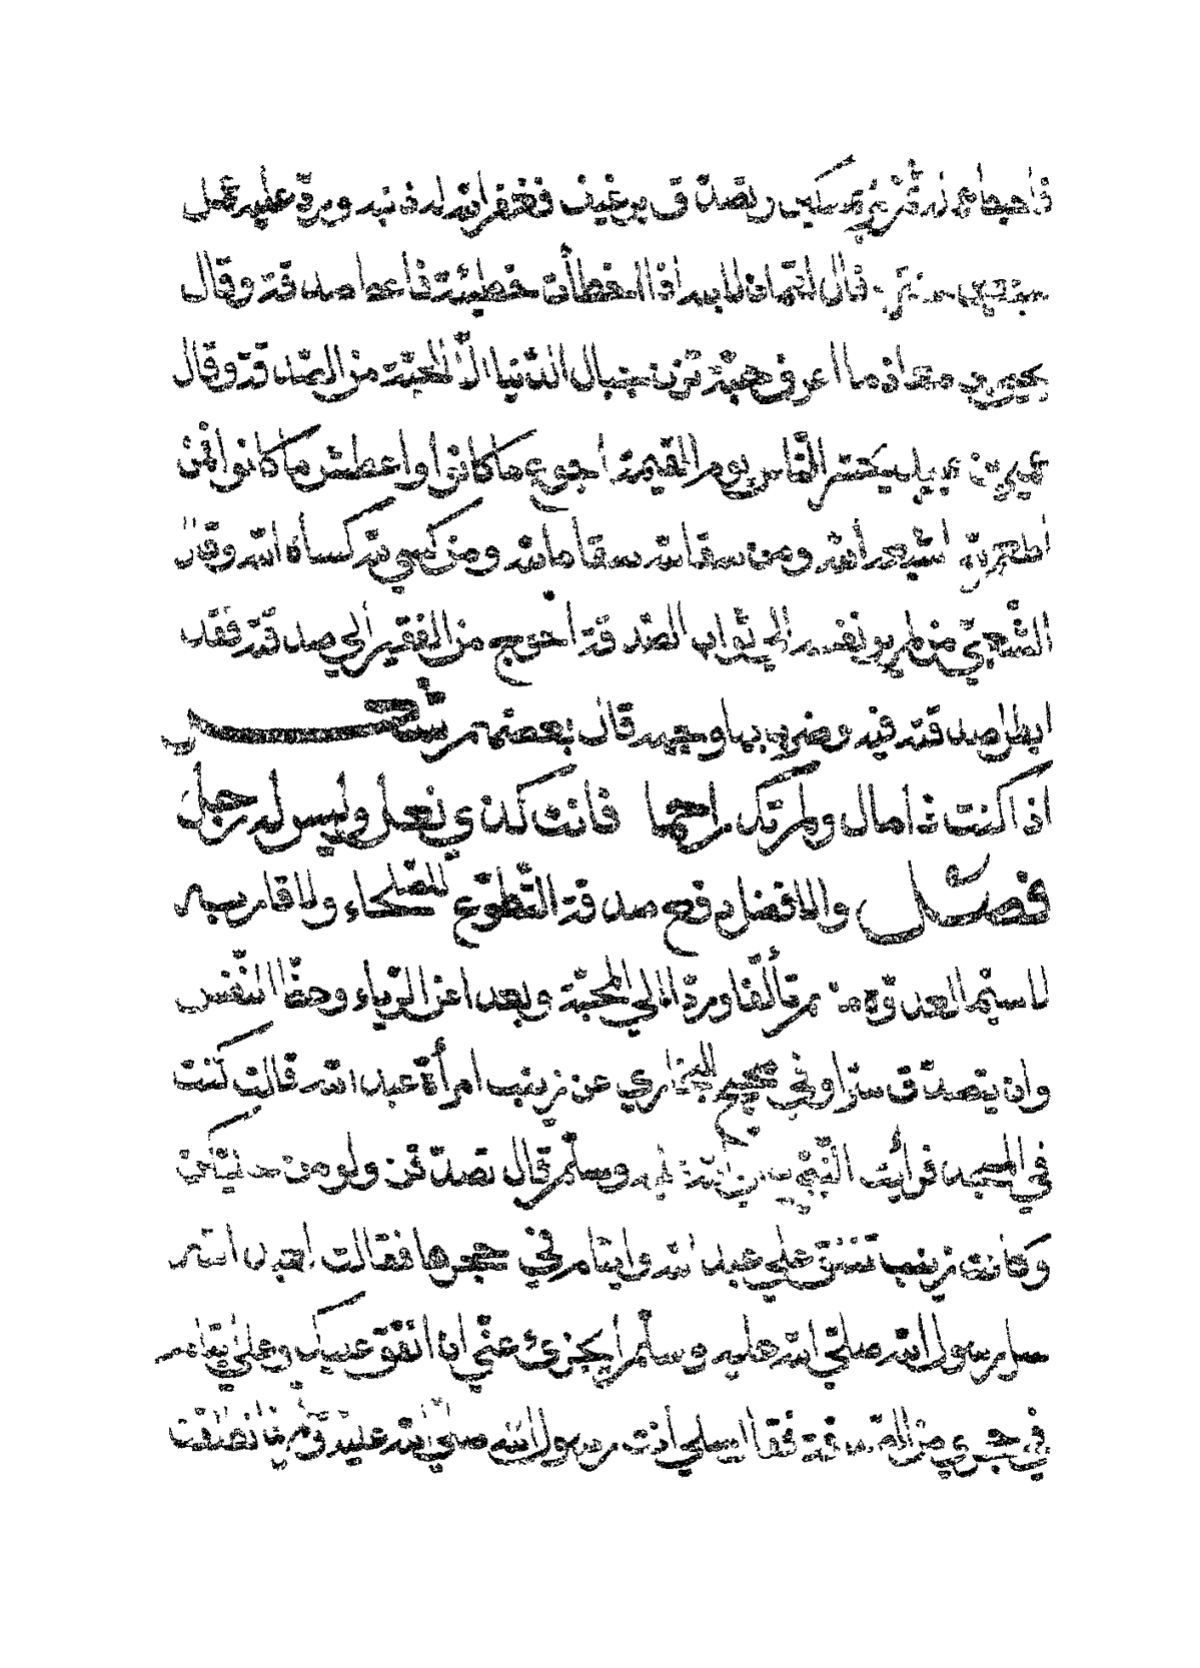 فاحبط عمله ثم مر بمسكين وتصدق برغيف فغفر الله له ذنبه ورد عليه عمل
سبعين سنة قال لقمان لابنه اذا اخطأت خطيئة فاعط صدقة وقال
يحيى بن معاذ ما اعرف حبة تزن جبال الدنيا الا الحبة من الصدقة وقال
عمير بن عبيد يحشر الناس يوم القيمة اجوع ما كانوا واعطش ما كانوا فمن
اطعم لله اشبعه الله ومن سقا لله سقاه الله ومن كسي لله كساه الله وقال
الشعبي من لم ير نفسه الي ثواب الصدقة احوج من الفقير الي صدقته فقد
ابطل صدقته فيه وضرب بها وجهه قال بعضهم شعر
اذا كنت ذا مال ولم تك راحما فانت كذي نعل وليس له رجل
فصل والافضل دفع صدقة التطوع للصلحاء ولاقاربه
لا سيما لعدوه منهم تألفا وردا الي المحبة وبعدا عن الرياء وحظ النفس
وان يتصدق سرا وفي صحيح البخاري عن زينب امرأة عبد الله قالت كنت
في المسجد فرأيت النبي صلي الله عليه وسلم قال تصدقن ولو من حليكن
وكانت زينب تنفق علي عبد الله وايتام في حجرها فقالت لعبد الله
سل رسول الله صلي الله عليه وسلم ايجزئ عني ان انفق عليك وعلي ايتامي
في حجري من الصدقة فقال سلي أنت رسول الله صلي الله عليه وسلم فانطلقت